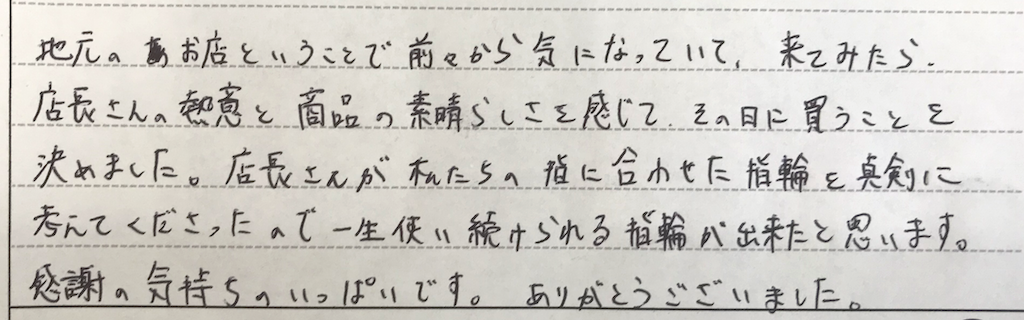 地元のお店ということで前々から気になっていて、来てみたら、
店長さんの熱意と商品の素晴らしさを感じて、その日に買うことを
決めました。店長さんが私たちの指に合わせた指輪を真剣に
考えてくださったので一生使い続けられる指輪が出来たと思います。
感謝の気持ちのいっぱいです。ありがとうございました。